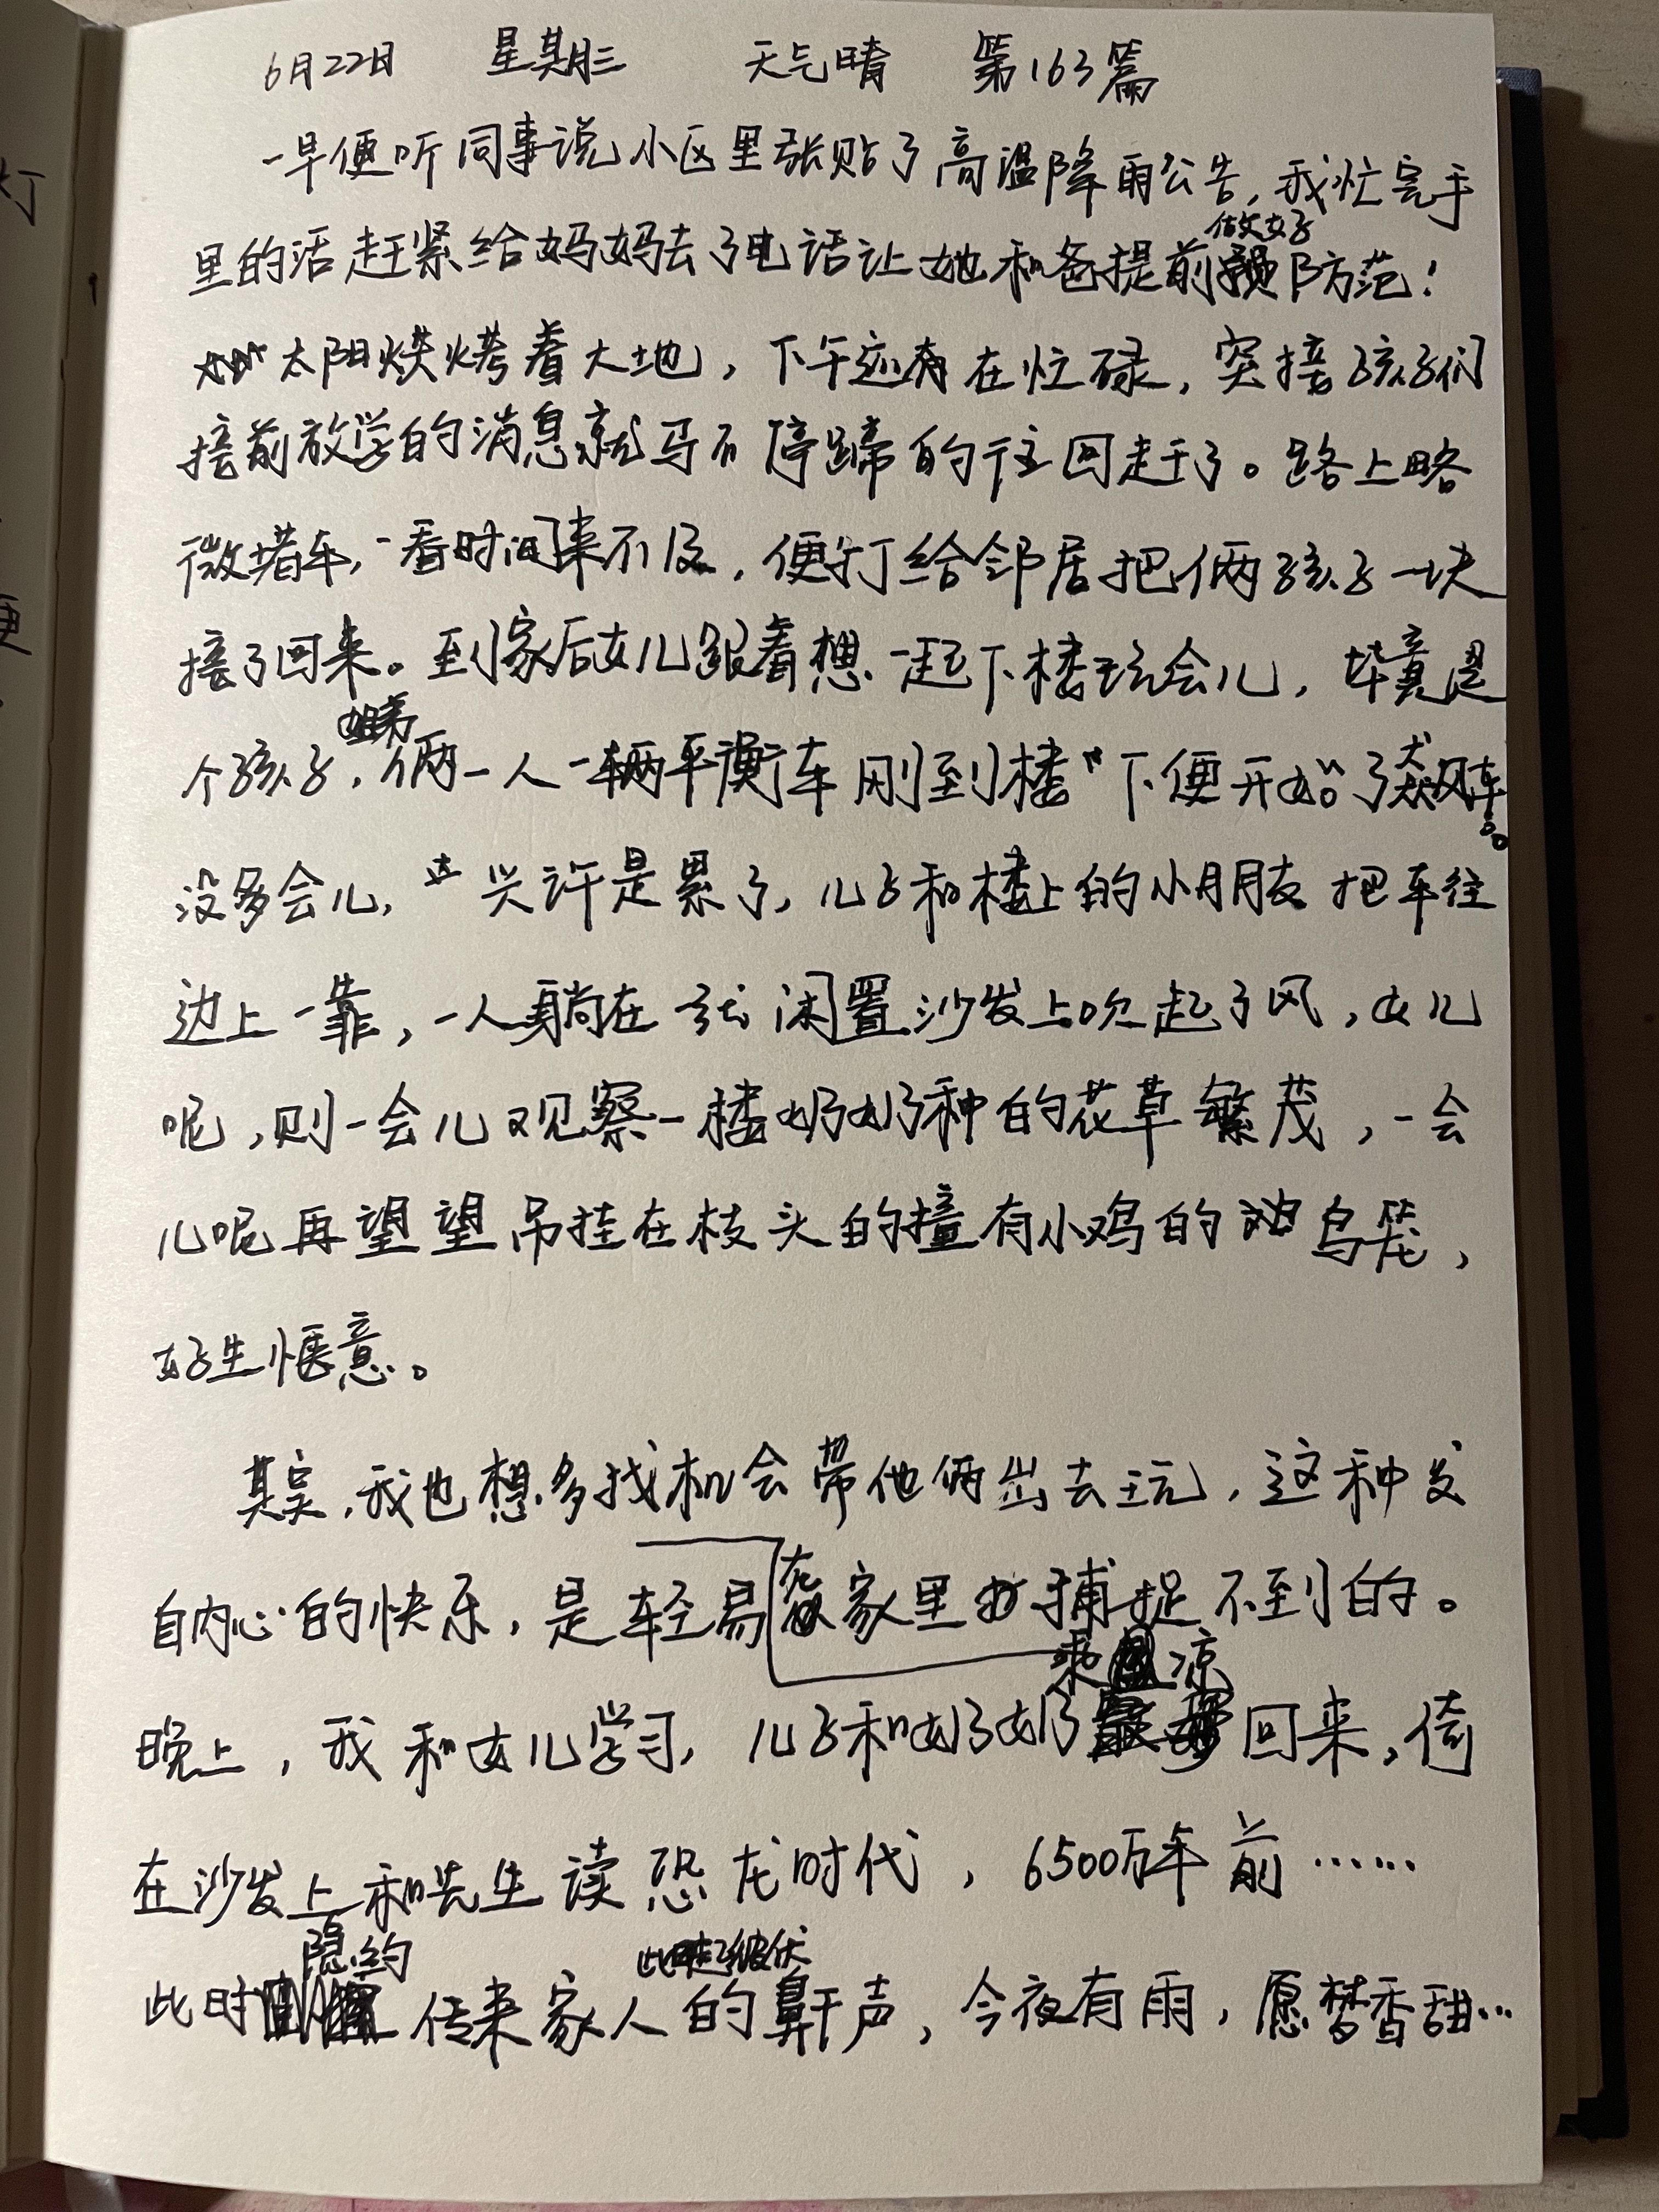 6月22日 星期三 天气晴 第163篇
一早便听同事说小区里张贴了高温降雨公告,我忙完手
做好
里的活赶紧给妈妈去了电话让她和爸提前防范!
太阳烘烤着大地,下午还在忙碌,突接孩子们
接前放学的消息就马不停蹄的往回赶了。路上略
微堵车,一看时间来不及,便打给邻居把俩孩子一块
接了回来。到家后女儿跟着想一起下楼玩会儿,毕竟是
姐弟
个孩子,俩一人一辆平衡车刚到楼下便开始了飙车。
没多会儿,兴许是累了,儿子和楼上的小朋友把车往
边上一靠,一人躺在闲置沙发上吹起了风,女儿
呢,则一会儿观察一楼奶奶种的花草繁茂,一会
儿呢再望望吊挂在枝头的撞有小鸡的鸟笼,
好生惬意。
其实,我也想多找机会带他俩出去玩,这种发
自内心的快乐,是轻易在家里捕捉不到的。
乘凉
晚上,我和女儿学习,儿子和奶奶回来,倚
在沙发上和先生读恐龙时代,6500万年前……
隐约 此起彼伏
此时传来家人的鼾声,今夜有雨,愿梦香甜…